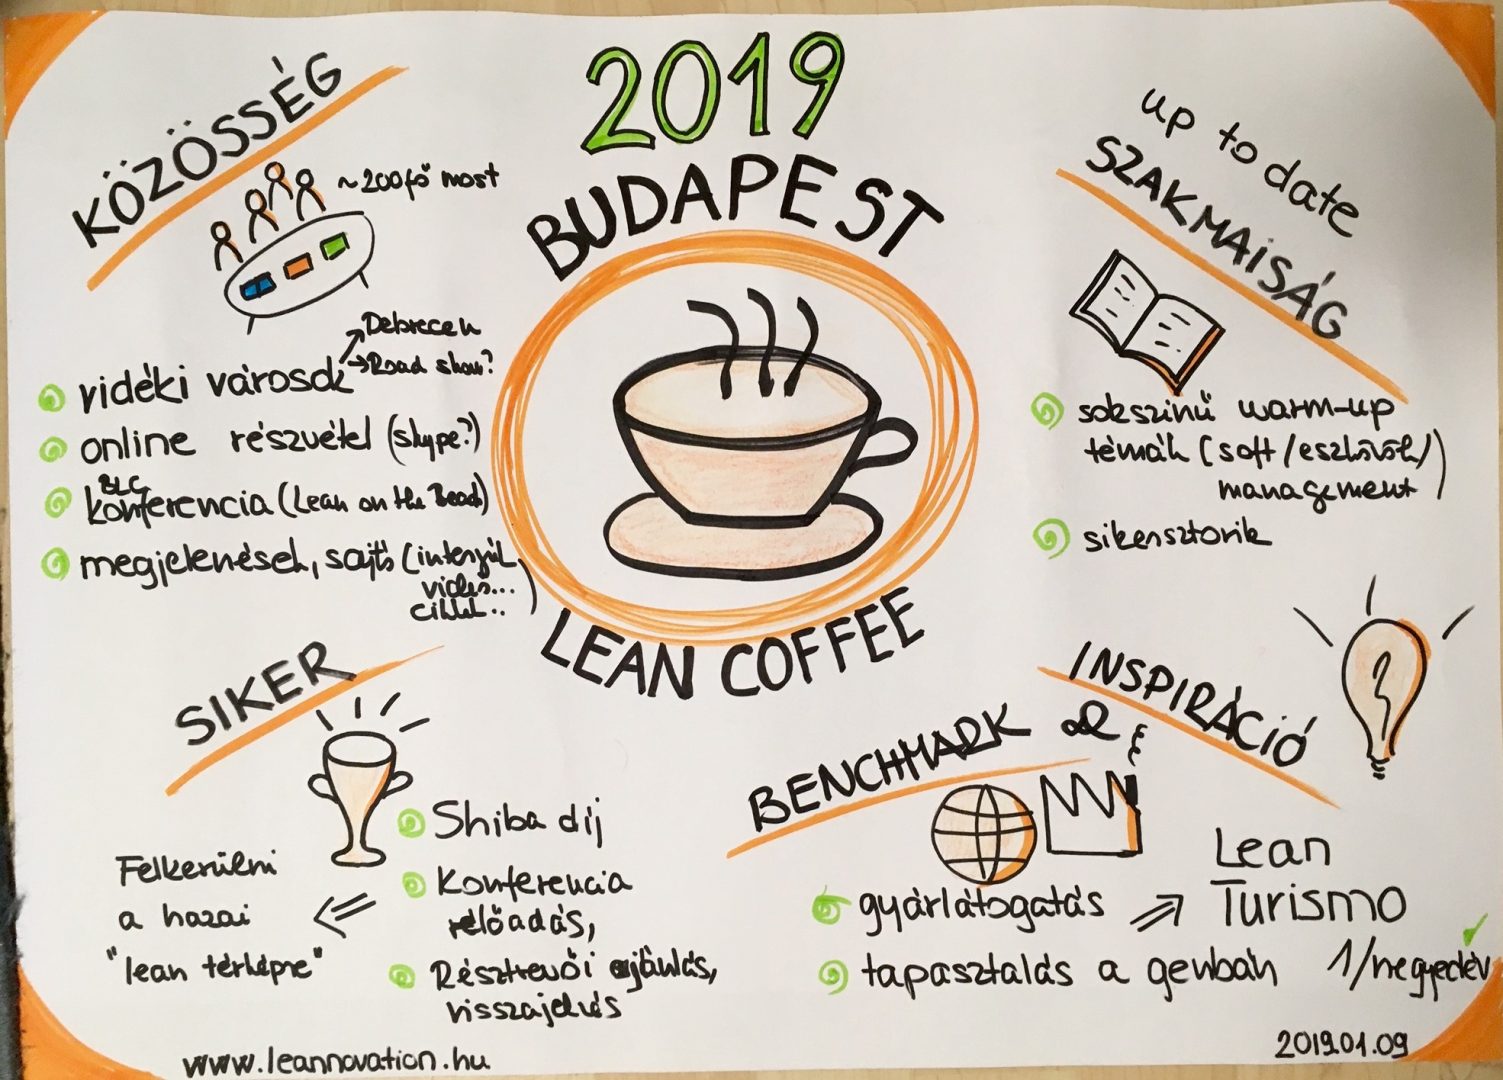 2019
BUDAPEST
LEAN COFFEE
KÖZÖSSÉG
~200 fő most
vidéki városok
Debrecen
Road show?
online részvétel (skype?)
BLC
konferencia (Lean on the Beach)
megjelenések, sajtó (interjúk,
videó...
cikkek..)
up to date
SZAKMAISÁG
sokszínű warm-up
témák (soft/eszközök/
management)
sikersztorik
SIKER
Shiba díj
Konferencia
előadás,
Résztvevői ajánlás,
visszajelzés
Felkerülni
a hazai
"lean térképre"
INSPIRÁCIÓ
BENCHMARK
gyárlátogatás
Lean
Turismo
tapasztalás a genbán
1/negyedév
www.leannovation.hu
2019.01.09